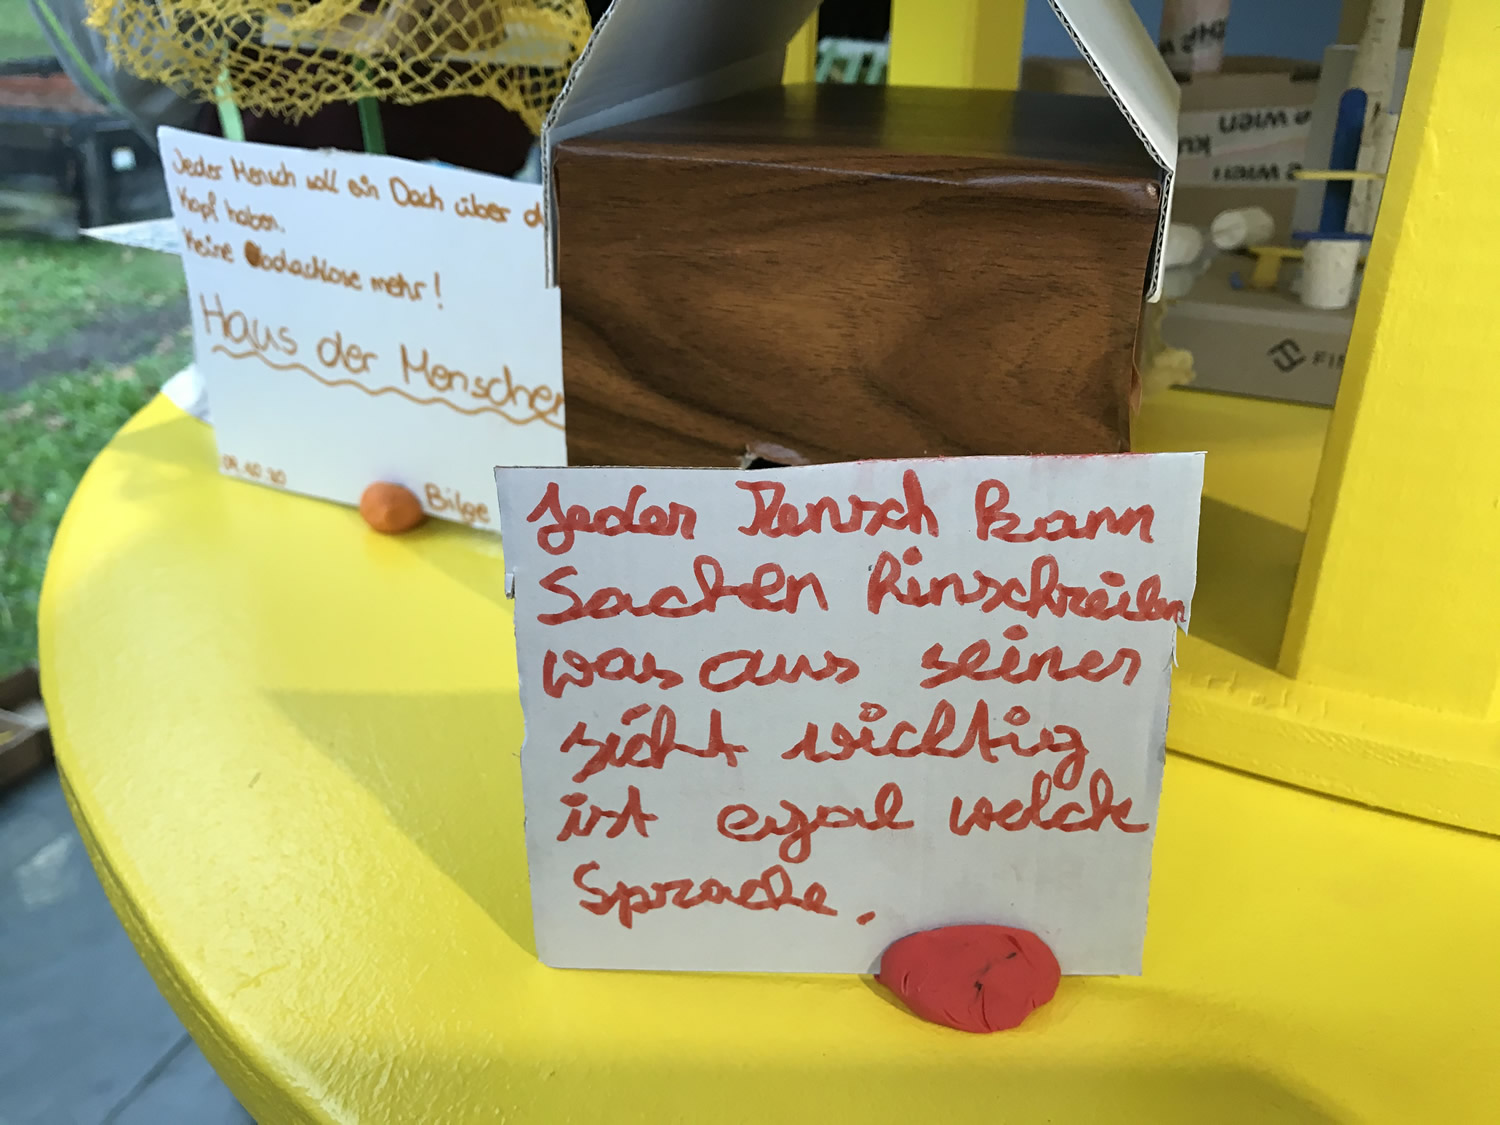 Jeder Mensch soll ein Dach über d
Kopf haben.
Keine Obdachlose mehr!
Haus der Menschen
09.10.20
Bilge
Jeder Mensch kann
Sachen hinschreiben
was aus seiner
sicht wichtig
ist egal welche
Sprache.
e wien
ku
e wien
FI